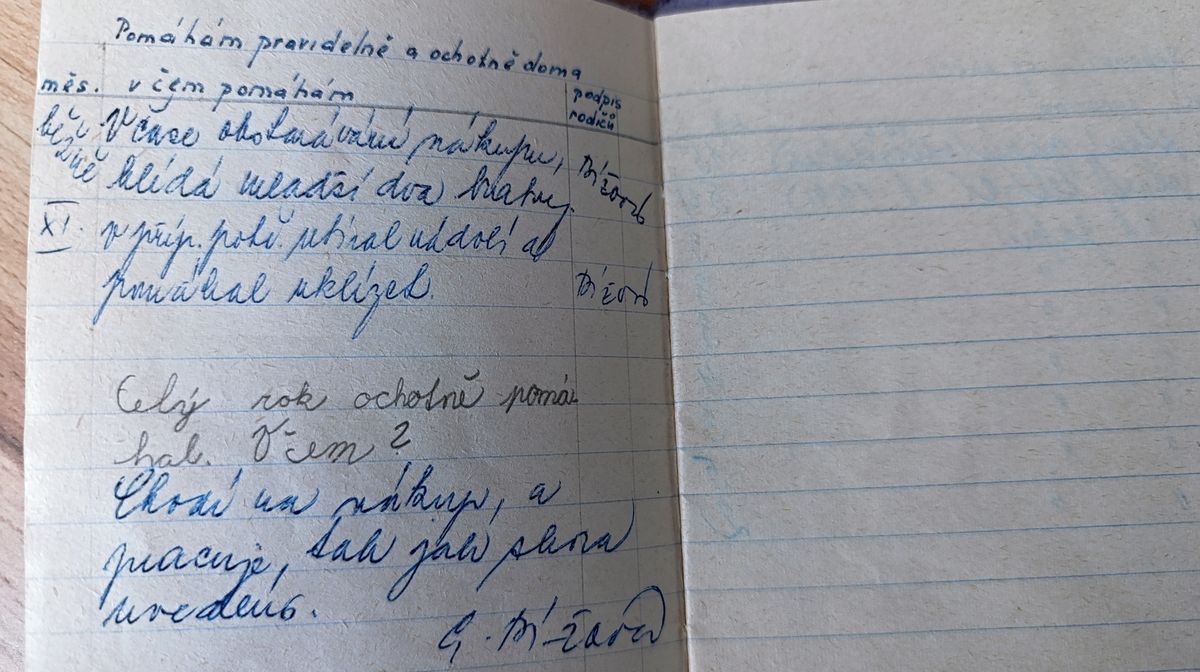 Pomáhám pravidelně a ochotně doma
měs. v čem pomáhám podpis rodičů
běž- V čase obstarávání nákupu,
ně hlídá mladší dva bratry.
XI. v příp. potř. utíral nádobí a
pomáhal uklízet.
Celý rok ochotně pomá
hal. V čem?
Chodí na nákup, a
pracuje, tak jak shora
uvedeno.